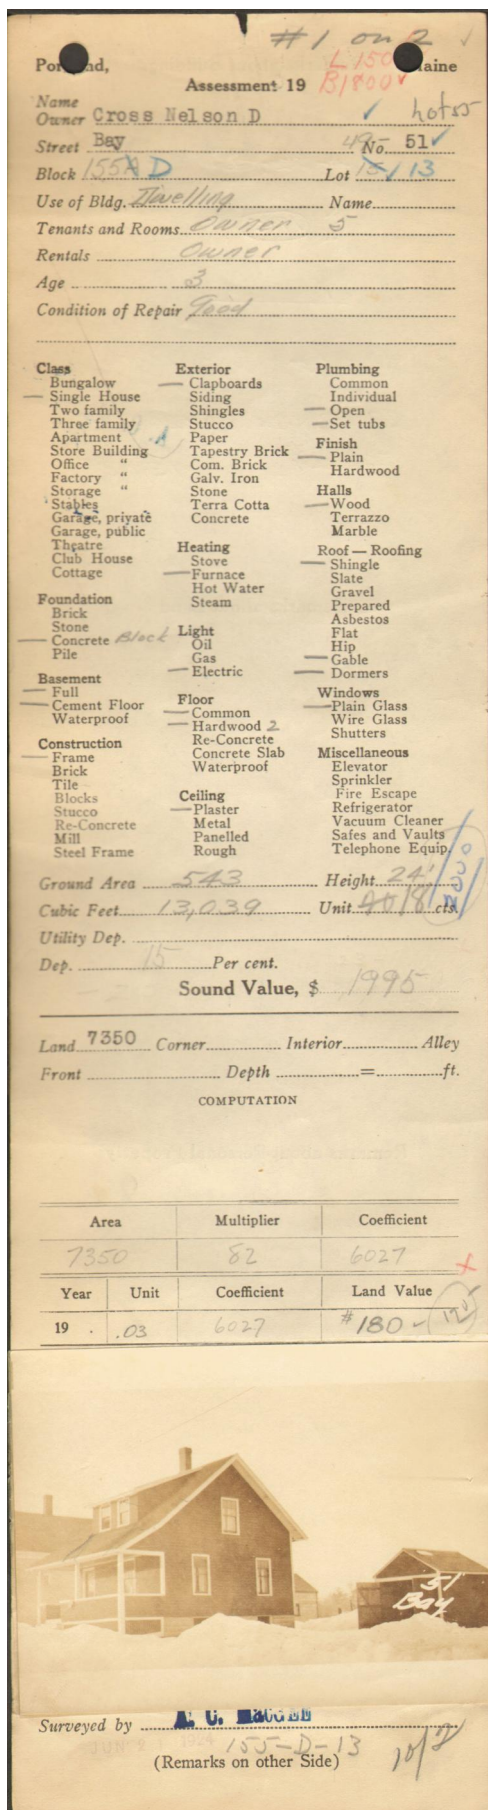 #1 on 2 ✓
L 150
Portland, Maine
B1800 ✓
Assessment 19
Name
Owner Cross Nelson D ✓ hot 55
Street Bay 495 No. 51 ✓
Block 155A D Lot 15 / 13
Use of Bldg. Dwelling Name
Tenants and Rooms. owner 5
Rentals owner
Age 3
Condition of Repair Good
Class
Bungalow
Single House
Two family
Three family
Apartment
Store Building
Office "
Factory "
Storage "
Stables
Garage, private
Garage, public
Theatre
Club House
Cottage
Foundation
Brick
Stone
Concrete Block
Pile
Basement
Full
Cement Floor
Waterproof
Construction
Frame
Brick
Tile
Blocks
Stucco
Re-Concrete
Mill
Steel Frame
Exterior
Clapboards
Siding
Shingles
Stucco
Paper
Tapestry Brick
Com. Brick
Galv. Iron
Stone
Terra Cotta
Concrete
Heating
Stove
Furnace
Hot Water
Steam
Light
Oil
Gas
Electric
Floor
Common
Hardwood 2
Re-Concrete
Concrete Slab
Waterproof
Ceiling
Plaster
Metal
Panelled
Rough
Plumbing
Common
Individual
Open
Set tubs
Finish
Plain
Hardwood
Halls
Wood
Terrazzo
Marble
Roof — Roofing
Shingle
Slate
Gravel
Prepared
Asbestos
Flat
Hip
Gable
Dormers
Windows
Plain Glass
Wire Glass
Shutters
Miscellaneous
Elevator
Sprinkler
Fire Escape
Refrigerator
Vacuum Cleaner
Safes and Vaults
Telephone Equip.
2000
Ground Area 543 Height 24'
Cubic Feet 13,039 Unit 18 cts.
Utility Dep.
Dep. 15 Per cent.
Sound Value, $ 1995
Land 7350 Corner Interior Alley
Front Depth = ft.
COMPUTATION
Area Multiplier Coefficient
7350 82 6027
Year Unit Coefficient Land Value
19 . .03 6027 #180 -
51
Bay
Surveyed by A. C. MACGEE
155-D-13 10/2
(Remarks on other Side)